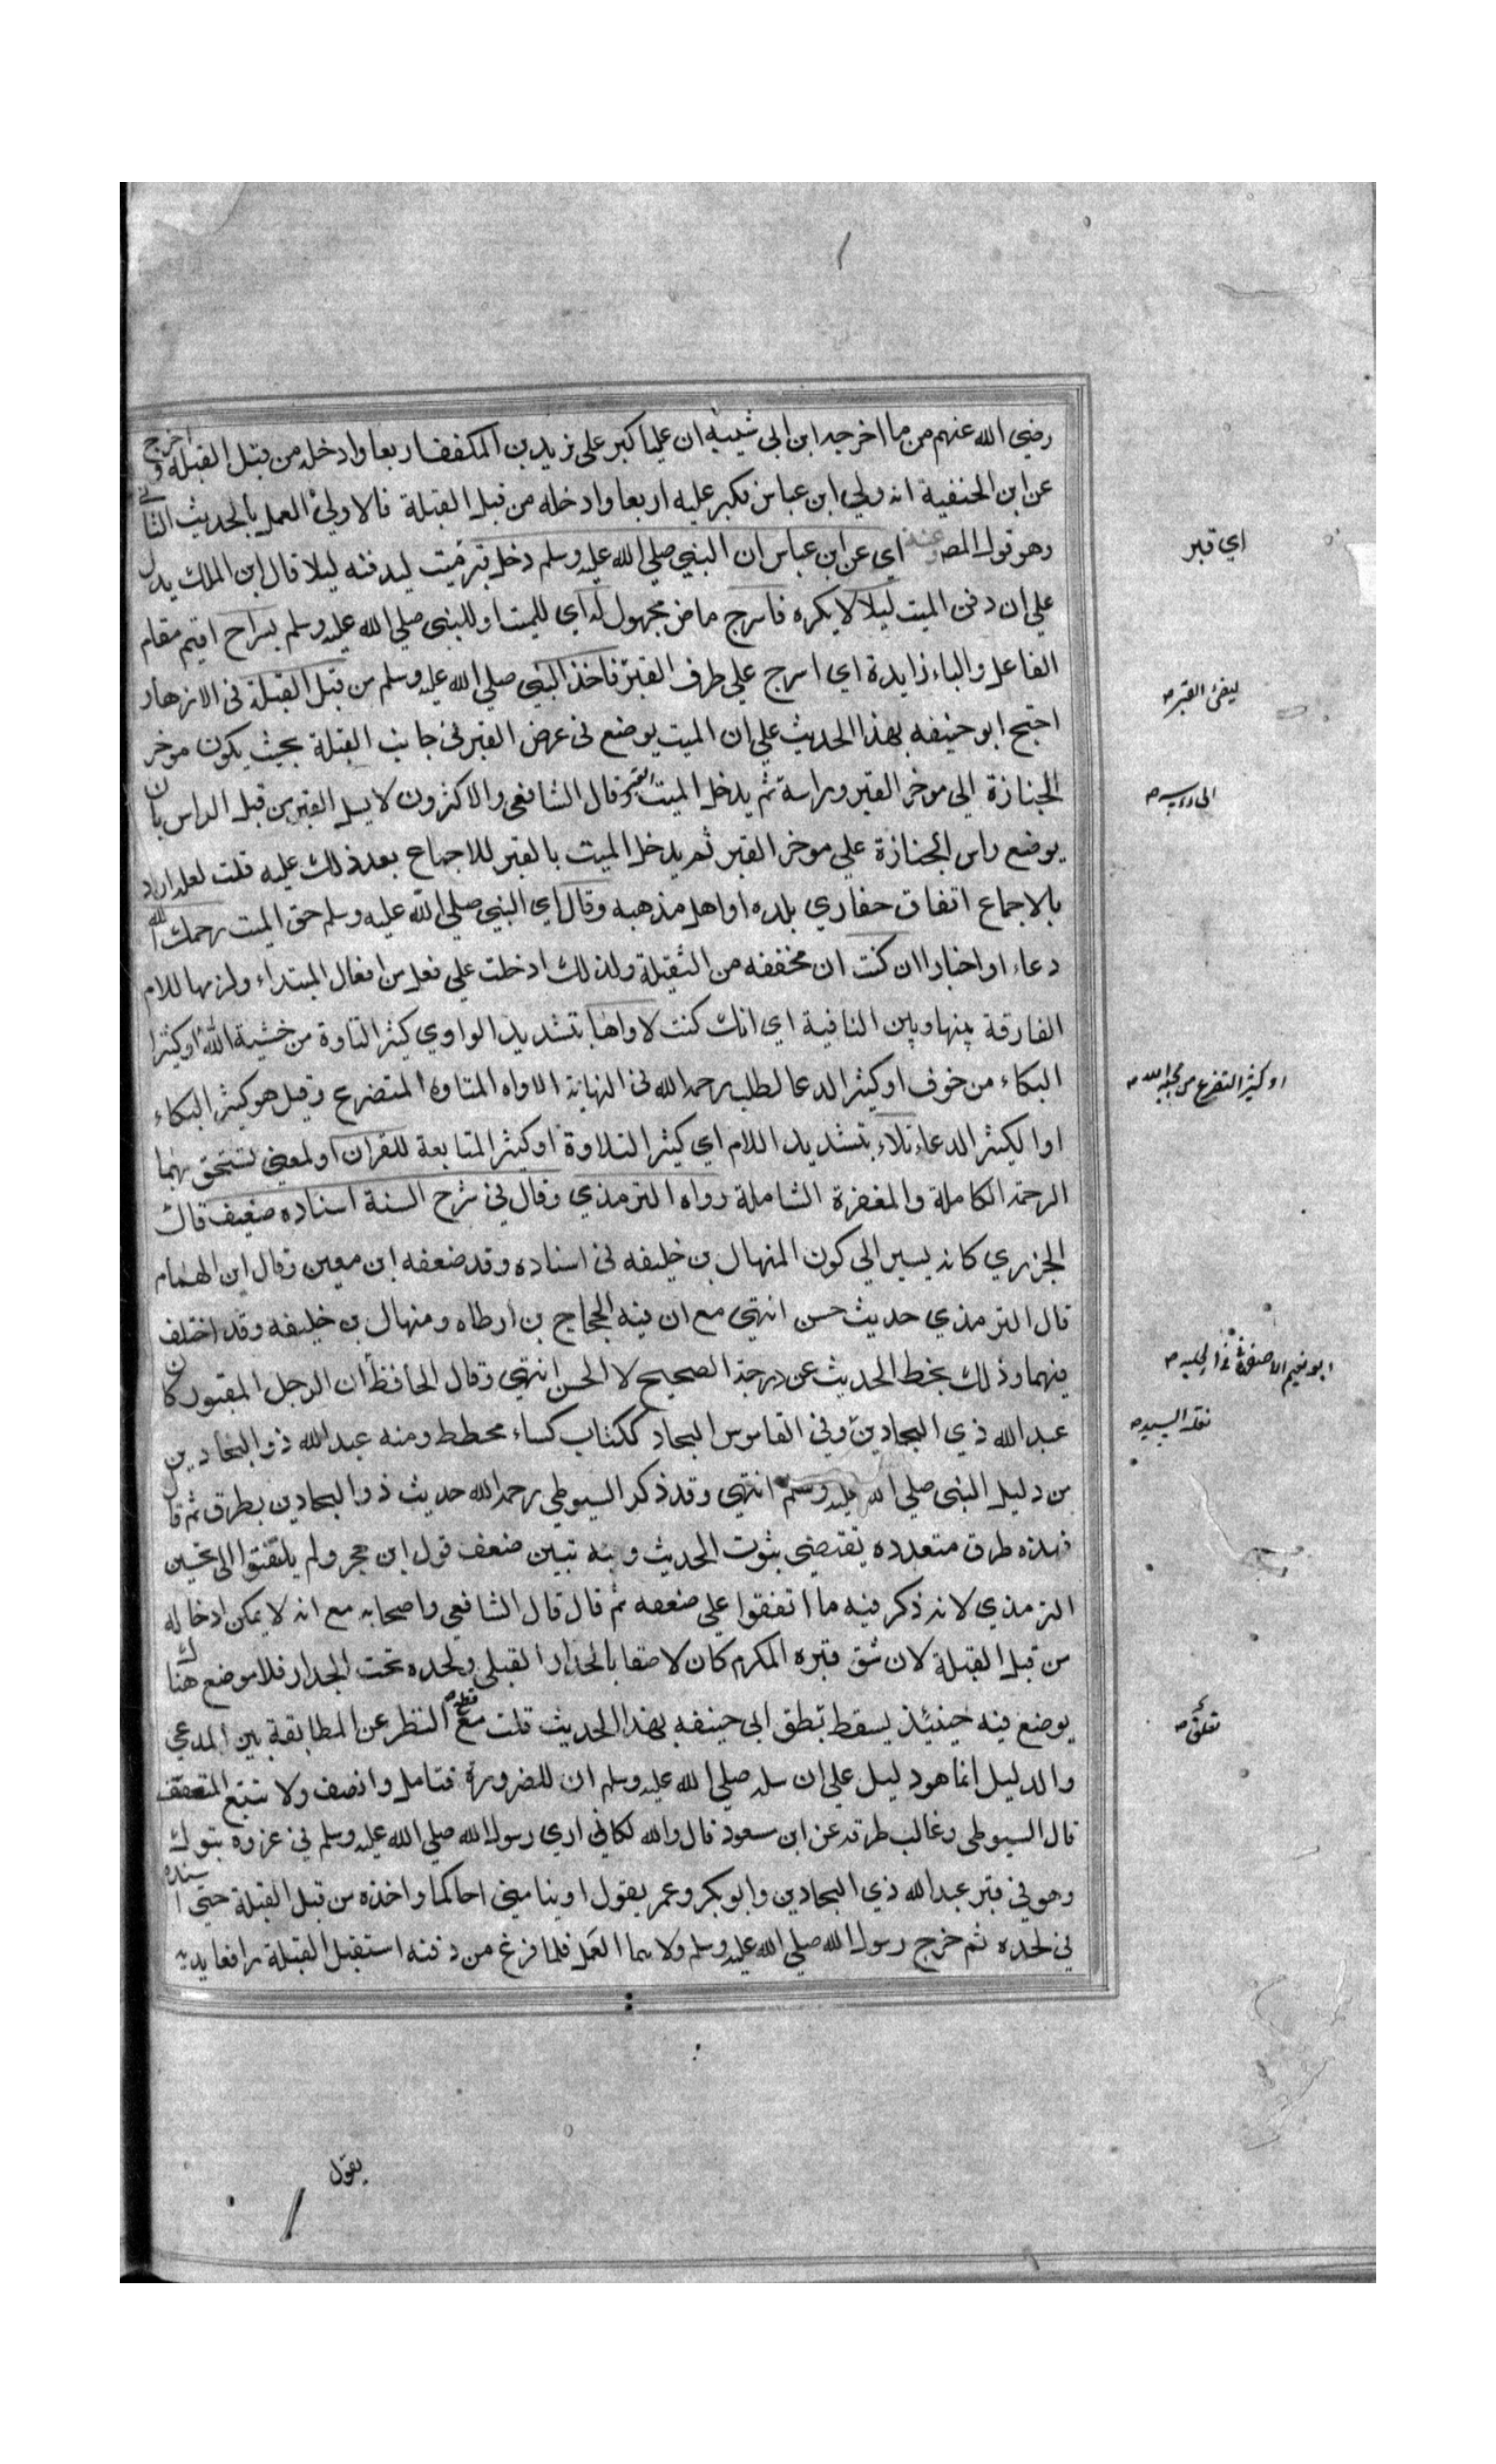 رضي الله عنهم من ما اخرجه ابن ابي شيبة ان عليا كبر على يزيد بن المكفف اربعا وادخله من قبل القبلة واخرج
عن ابن الحنفية انه ولي ابن عباس فكبر عليه اربعا وادخله من قبل القبلة فالاولى العمل بالحديث الثاني
وهو قول المص وعنه اي عن ابن عباس ان النبي صلى الله عليه وسلم دخل قبر ميت ليدفنه ليلا قال ابن الملك يدل
على ان دفن الميت ليلا لا يكره فاسرج ماض مجهول له اي للميت او للنبي صلى الله عليه وسلم بسراج اقيم مقام
الفاعل والباء زايدة اي اسرج على طرف القبر فاخذ النبي صلى الله عليه وسلم من قبل القبلة في الازهار
احتج ابو حنيفه بهذا الحديث على ان الميت يوضع في عرض القبر في جانب القبلة بحيث يكون موخر
الجنازة الى موخر القبر وراسة ثم يدخل الميت القبر وقال الشافعي والاكثرون لا يسل القبر من قبل الراس بان
يوضع راس الجنازة على موخر القبر ثم يدخل الميت بالقبر للاجماع بعد ذلك عليه قلت لعله اراد
بالاجماع اتفاق حفاري بلده او اهل مذهبه وقال اي النبي صلى الله عليه وسلم حق الميت رحمك الله
دعاء او اخبارا ان كنت ان مخففه من الثقيلة ولذلك ادخلت على فعل من افعال المبتداء ولزمها للام
الفارقة بينها وبين النافية اي انك كنت لاواها بتشديد الواو اي كثير التاوه من خشية الله او كثير
البكاء من خوف او كثير الدعا لطلب رحمه الله في النهاية الاواه المتاوه المتضرع وقيل هو كثير البكاء
او الكثير الدعاء تلاء بتشديد اللام اي كثير التلاوة او كثير المتابعة للقران او لمعنى تستحق بهما
الرحمة الكاملة والمغفرة الشاملة رواه الترمذي وقال في شرح السنة اسناده ضعيف قال
الجزري كانه يسير الى كون المنهال بن خليفه في اسناده وقد ضعفه ابن معين وقال ابن الهمام
قال الترمذي حديث حسن انتهى مع ان فيه الحجاج بن ارطاه ومنهال بن خليفه وقد اختلف
فيهما وذلك يحط الحديث عن درجة الصحيح لا الحسن انتهى وقال الحافظ ان الرجل المقبور كان
عبد الله ذي البجادين وفي القاموس البجاد ككتاب كساء مخطط ومنه عبد الله ذو البجادين
من دليل النبي صلى الله عليه وسلم انتهى وقد ذكر السيوطي رحمه الله حديث ذو البجادين بطرق ثم قال
فهذه طرق متعدده يقتضي بثوت الحديث وبه تبين ضعف قول ابن حجر ولم يلتفتوا الى تحسين
الترمذي لانه ذكر فيه ما اتفقوا على ضعفه ثم قال قال الشافعي واصحابه مع انه لا يمكن ادخاله
من قبل القبلة لان شق قبره المكرم كان لاصقا بالجدار القبلي ولحده تحت الجدار فلا موضع هناك
يوضع فيه حينئذ يسقط تطق ابي حنيفه بهذا الحديث قلت مع قطع النظر عن المطابقة بين المدعي
والدليل انما هو دليل على ان سله صلى الله عليه وسلم ان للضرورة فتامل وانصف ولا تتبع المتعقف
قال السيوطي وغالب طرقه عن ابن سعود قال والله لكاني اري رسول الله صلى الله عليه وسلم في غزوه تبوك
وهو في قبر عبد الله ذي البجادين وابو بكر وعمر يقول اوينا مني اخاكما واخذه من قبل القبلة حتى اسنده
في لحده ثم خرج رسول الله صلى الله عليه وسلم ولاهما العمل فلما فرغ من دفنه استقبل القبلة رافعا يديه
يقول
اي قبر
ليضئ القبر صه
او كثير التضرع من محبة الله صه
ابو نعيم الاصفهاني في الحليه صه
نقله السيد صه
تعلق صه